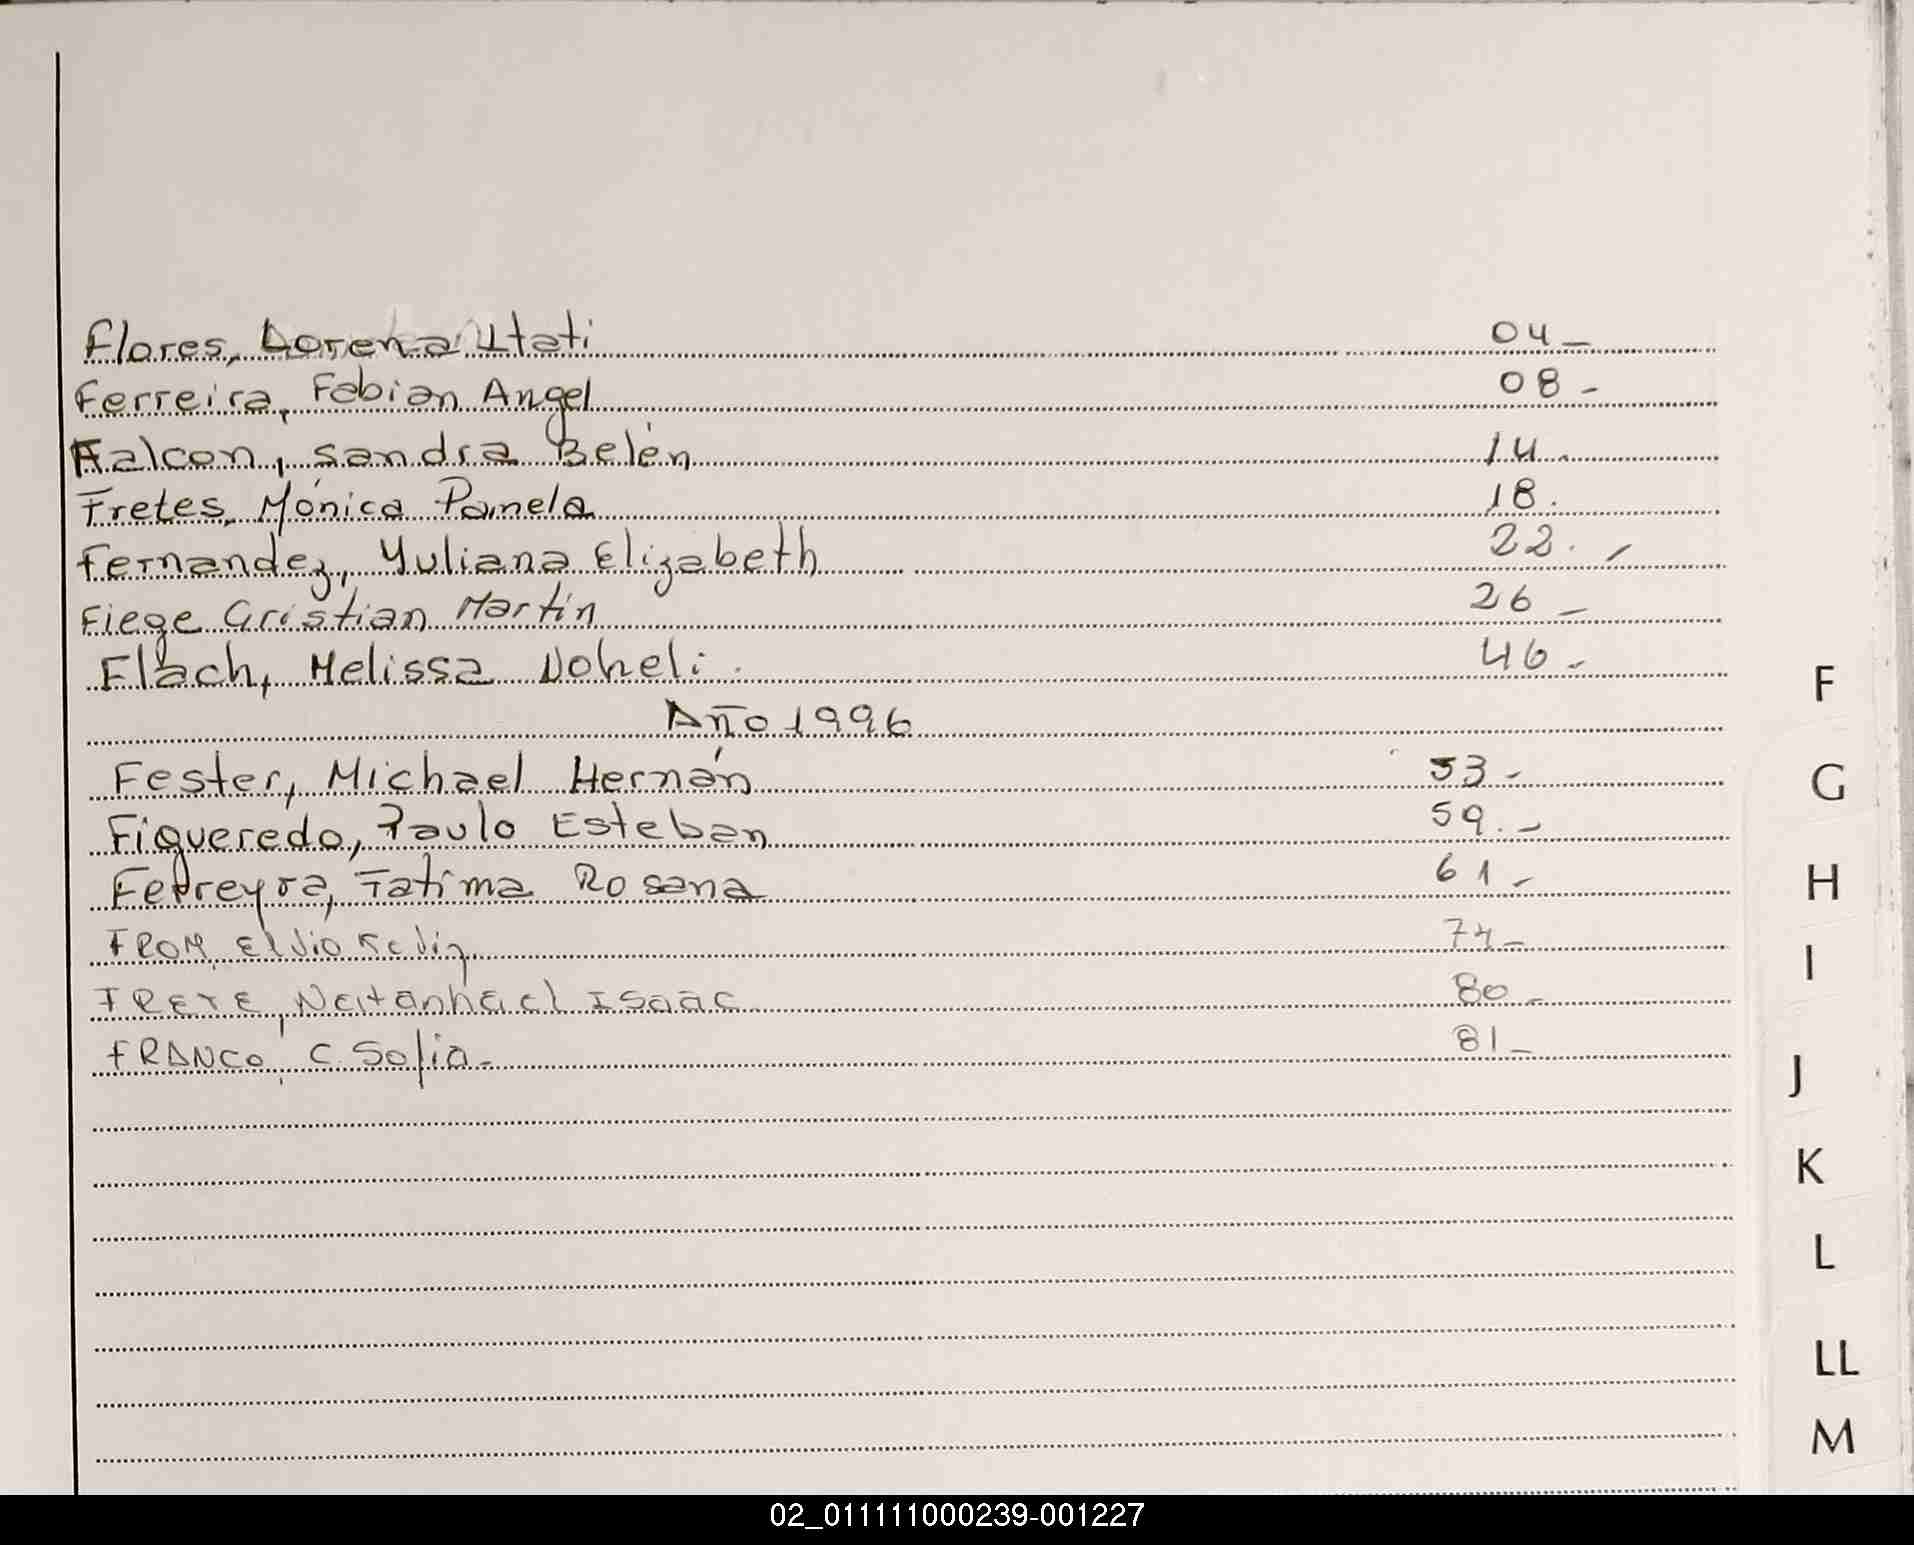 Flores, Lorena Itati 04_
Ferreira, Fabian Angel 08-
Falcon, Sandra Belén 14.
Fretes, Mónica Pamela 18.
Fernandez, Yuliana Elizabeth 22.-
Fiege Cristian Martín 26_
Flach, Melissa Noheli. 46-
Año 1996
Fester, Michael Hernán 53-
Figueredo, Paulo Esteban 59.-
Ferreyra, Fatima Rosana 61-
FROM, Elvio 74_
FRETE, Natanhael ISaac 80-
FRANCO, C. Sofia- 81_
F
G
H
I
J
K
L
LL
M
02_011111000239-001227